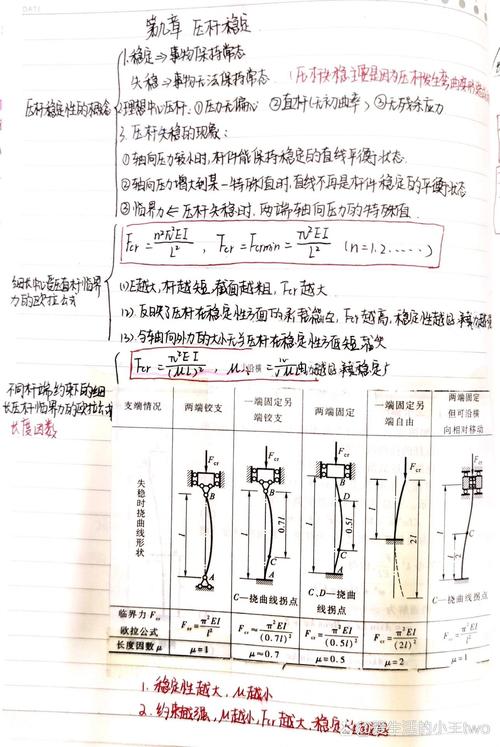 DATE
第九章 压杆稳定
压杆稳定性的概念
1.稳定⇒事物保持常态
失稳⇒事物无法保持常态 (压杆失稳主要是因为压杆发生弯曲
2.理想中心压杆:①压力无偏心 ②直杆(无初曲率) ③无残余应力
3.压杆失稳的现象:
①轴向压力较小时,杆件能保持稳定的直线平衡状态
②轴向压力增大到某一特殊值时,直线不再是杆件稳定的平衡状态
③临界力⇐压杆失稳时,两端轴向压力的特殊值
细长中心受压直杆临界力的欧拉公式
Fcr=n²π²EI/L² , Fcr=Fcrmin=π²EI/L² (n=1.2.....)
(1)E越大,杆越短,截面越粗,Fcr越大
(2).反映了压杆在稳定性方面的承载能力,Fcr越高,稳定性越
(3).与轴向外力的大小无关
不同杆端约束下的细长压杆临界力的欧拉公式
长度因数
Fcr=π²EI/(μL)²
支端情况 两端铰支 一端固定另一端铰支 两端固定 一端固定另一端自由 两端固定但可沿横向相对移动
失稳时挠曲线形状
Fcr Fcr Fcr Fcr Fcr
B B B
D
l l 0.7l l 0.5l l 2l l
C C C
A A A
C—挠曲线拐点 C、D—挠曲线拐点 C—挠曲线拐点
临界力Fcr欧拉公式 Fcr=π²EI/l² Fcr≈π²EI/(0.7l)² Fcr=π²EI/(0.5l)² Fcr=π²EI/(2l)² Fcr=π²EI/l²
长度因数μ μ=1 μ≈0.7 μ=0.5 μ=2 μ=1
1.稳定性越大,μ越小
2.约束越强,μ越小,Fcr越大,稳定
生活的小王two